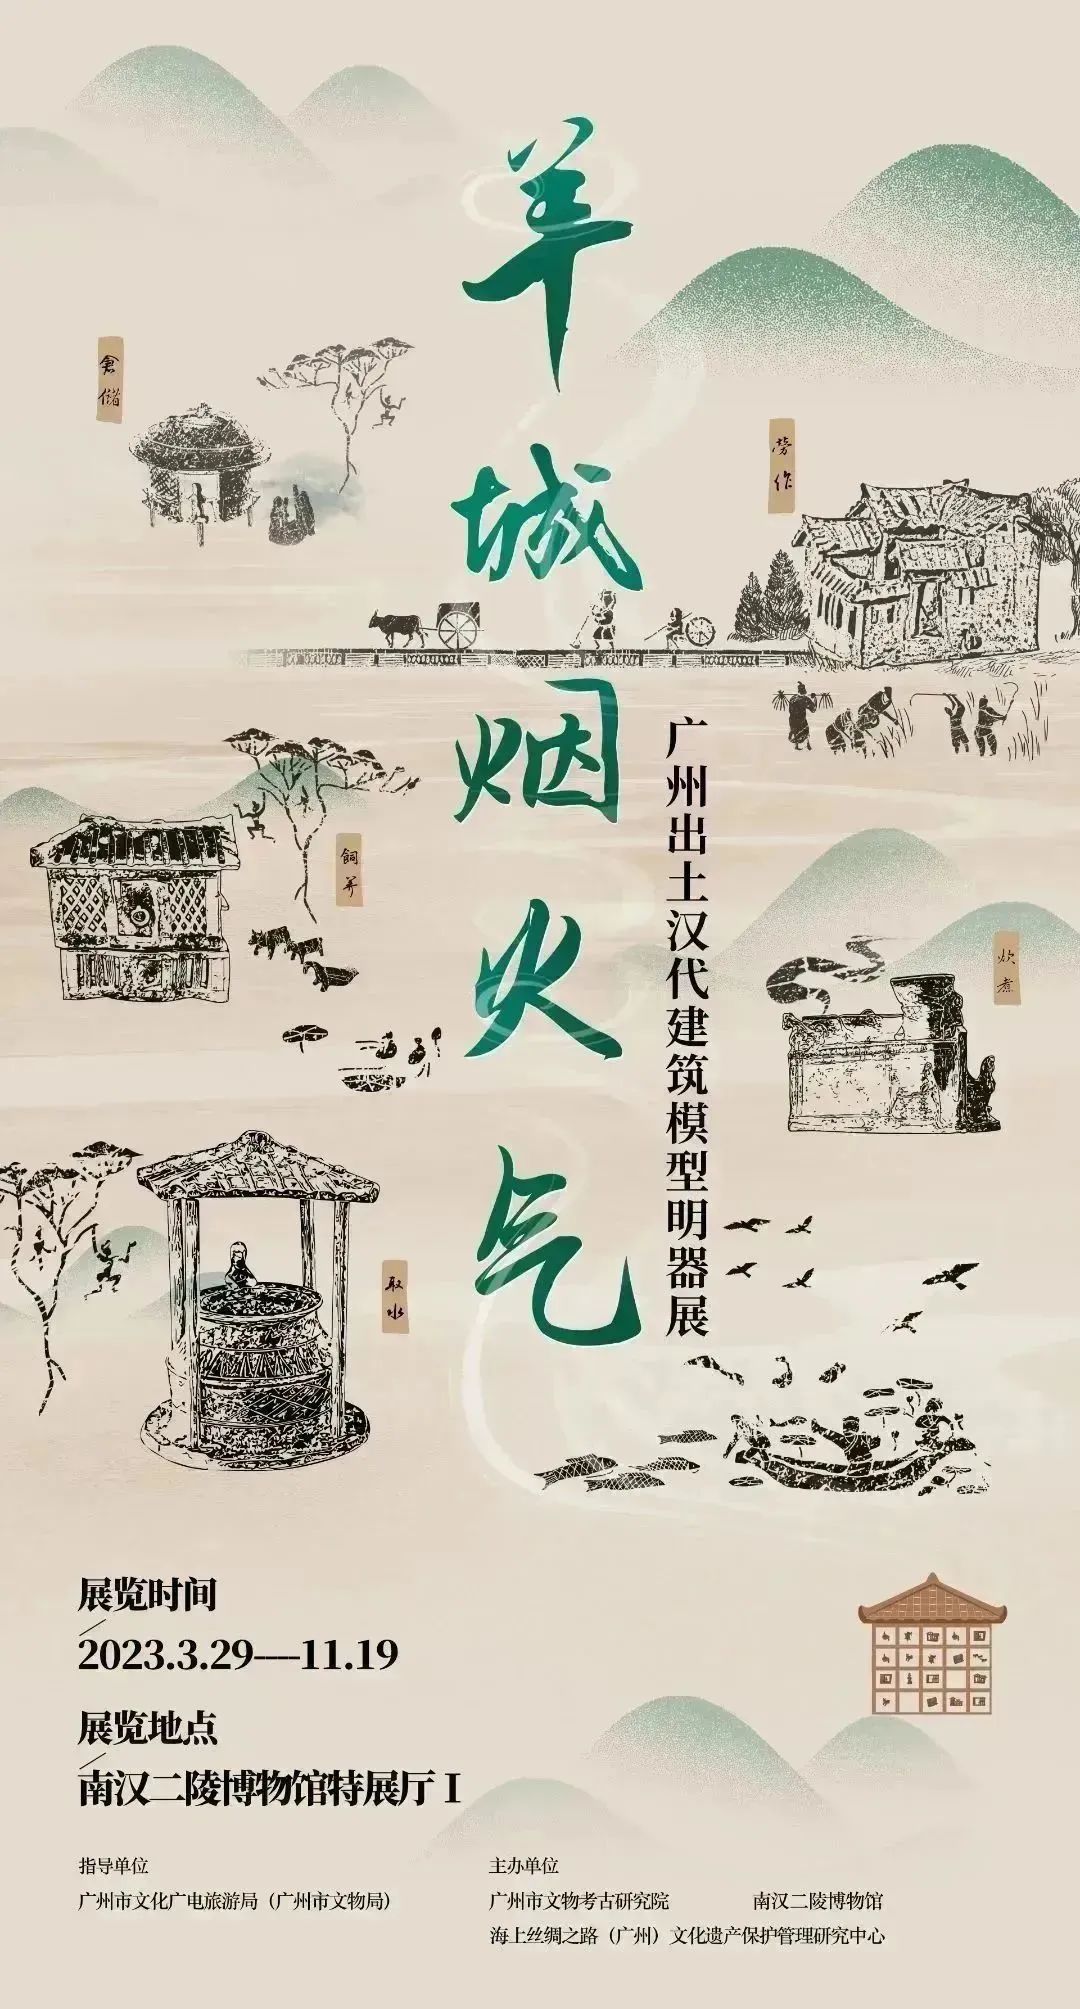 羊城烟火气
广州出土汉代建筑模型明器展
倉储
劳作
飼养
炊煮
取水
展览时间
2023.3.29—11.19
展览地点
南汉二陵博物馆特展厅 I
指导单位
广州市文化广电旅游局（广州市文物局）
主办单位
广州市文物考古研究院 南汉二陵博物馆
海上丝绸之路（广州）文化遗产保护管理研究中心